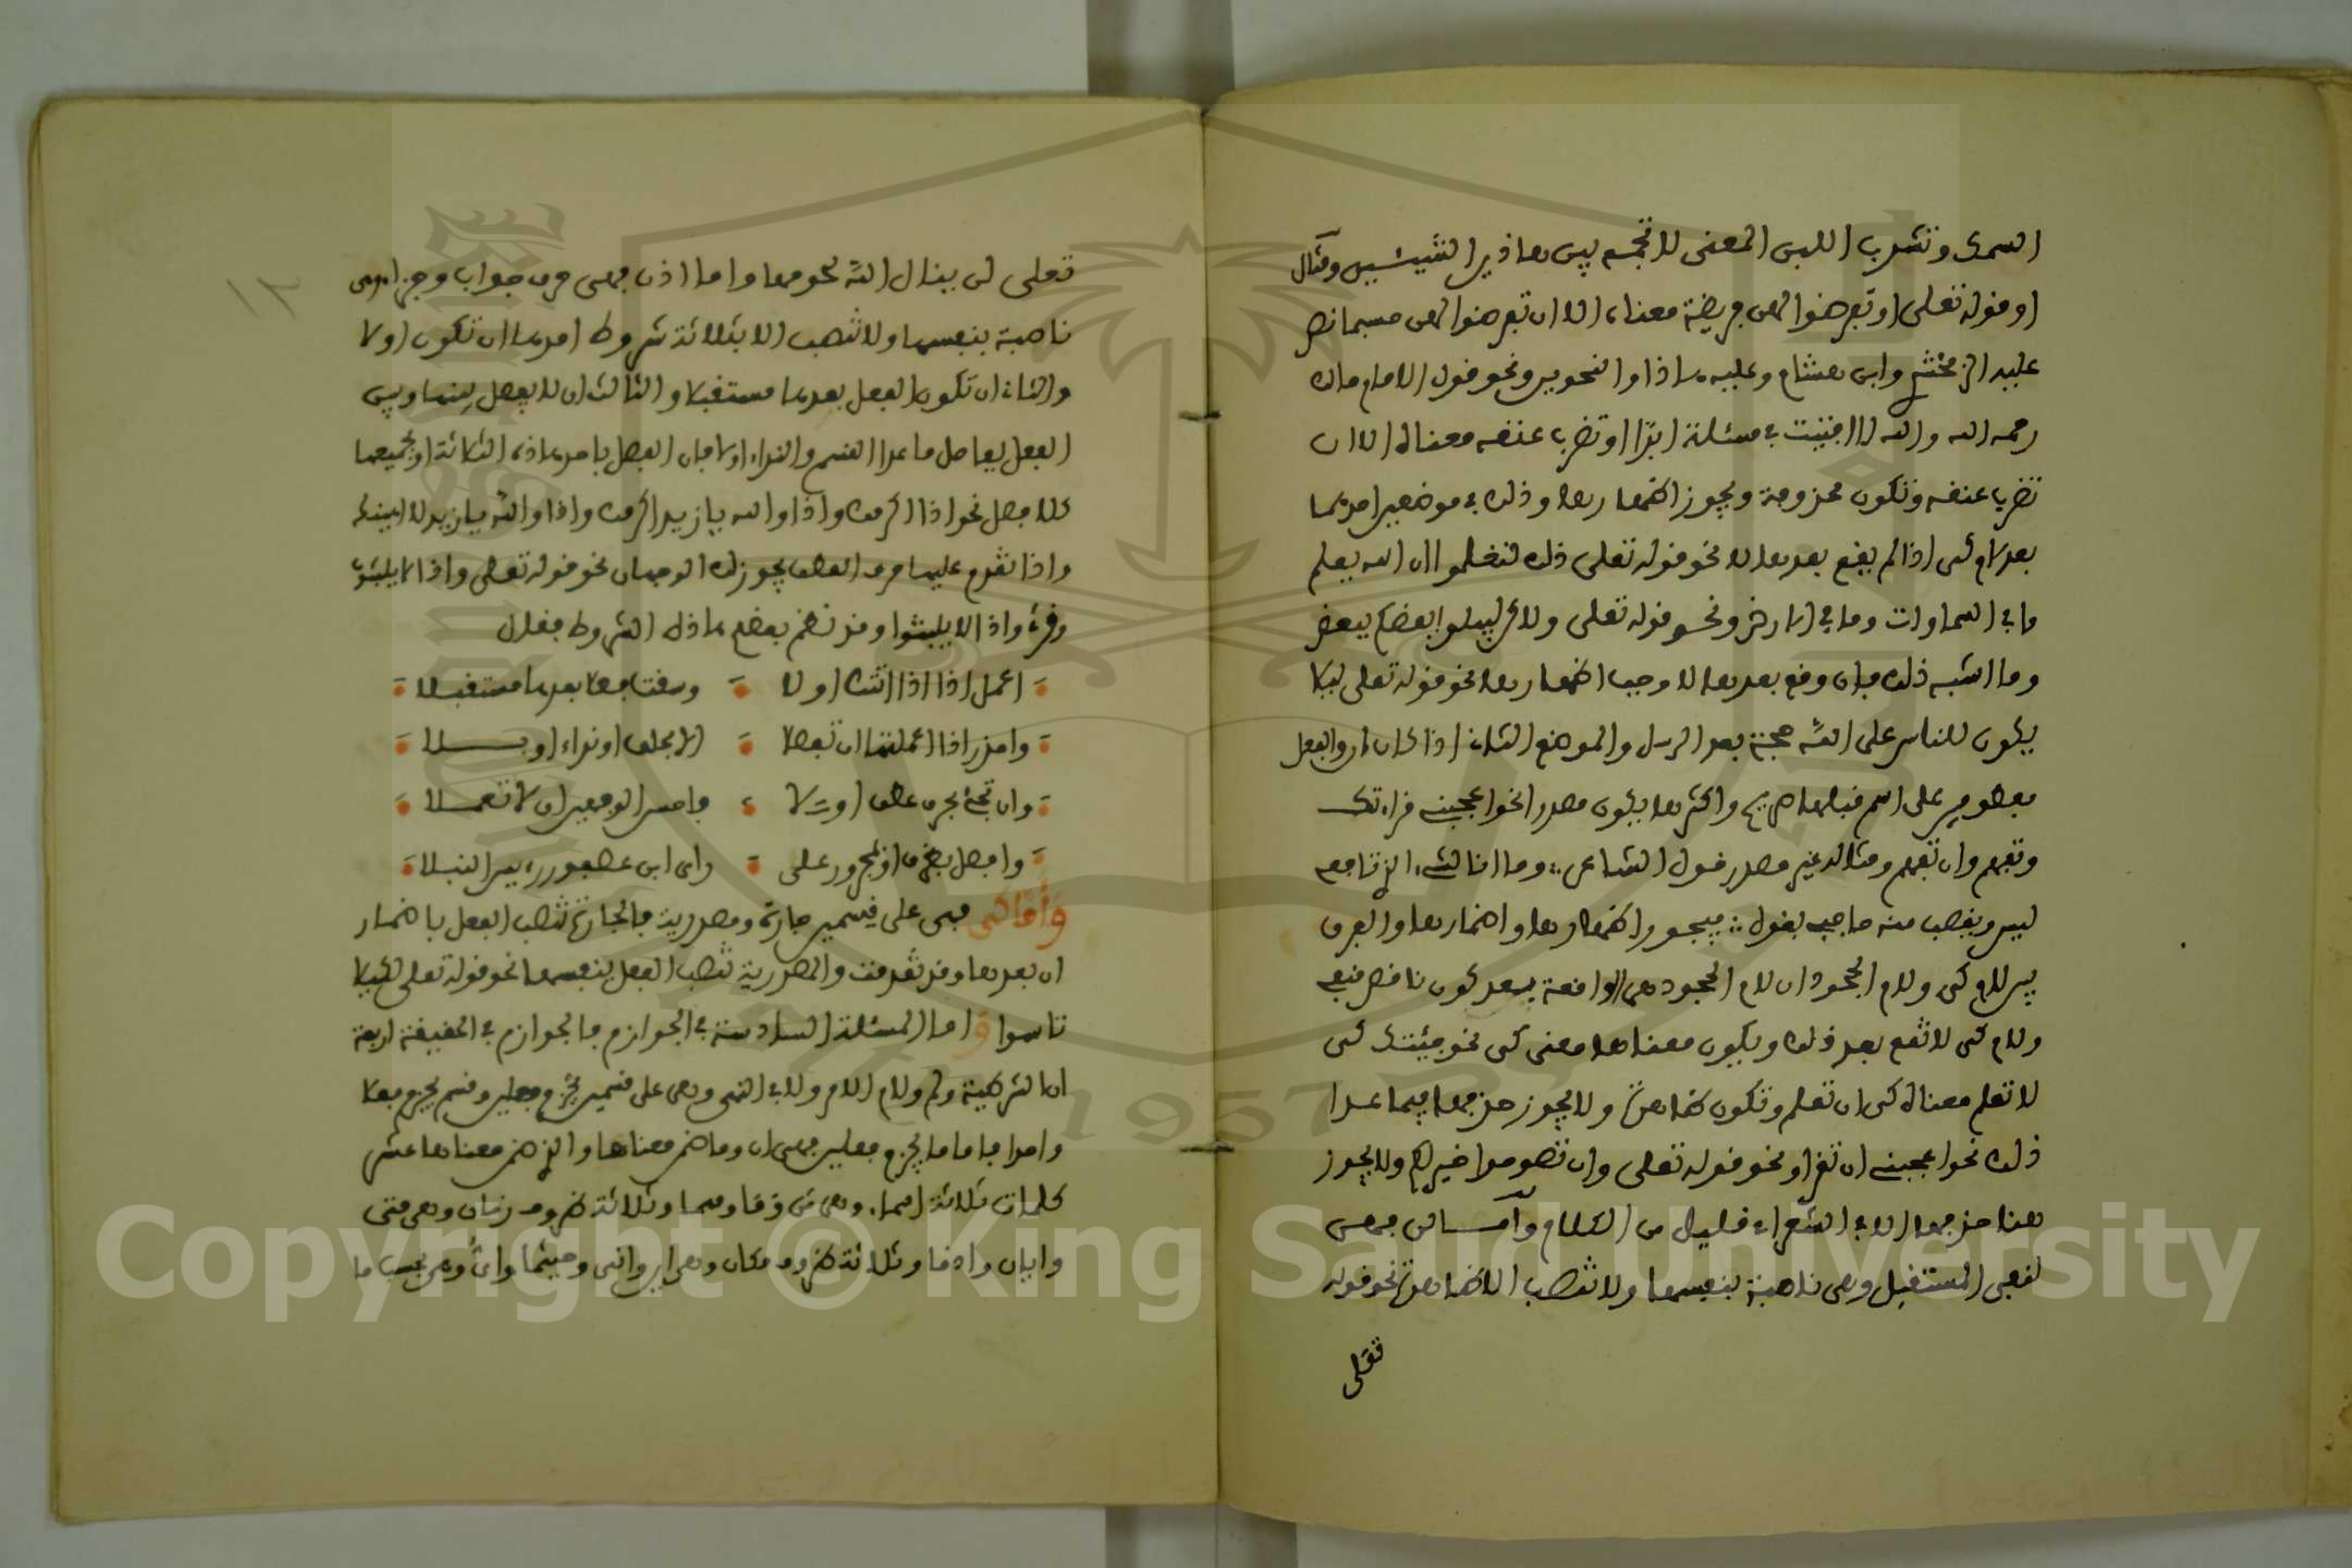 السمك وتشرب اللبن المعنى لا تجمع بين هاذين الشيئين ومثال
او قوله تعلى او تفرضوا لهن فريضة معناه الا ان تفرضوا لهن حسبما نص
عليه الزمخشري وابن هشام وعليه هاذا والنحويين ونحو قول الامام مالك
رحمه الله والله لا افتيت في مسئلة ابدا او تضرب عنقه معناه الا ان
تضرب عنقه وتكون محزومة ويجوز اضمارها وذلك في موضعين احدهما
بعد لام كي اذا لم يقع بعدها لا نحو قوله تعلى ذلك لتعلموا ان الله يعلم
ما في السماوات وما في الارض ونحو قوله تعلى ولاكن ليبلوا بعضكم ببعض
وما اشبه ذلك فان وقع بعدها لا وجب اظهارها نحو قوله تعلى ليلا
يكون للناس على الله حجة بعد الرسل والموضع الثاني اذا كان ان والفعل
معطوفين على اسم قبلها صريح واكثرها يكون مصدرا نحو اعجبني قراءتك
وتفهم وان تفهم ومثاله غير مصدر قول الشاعر وما انا للشيء الذي نافعي
ليس ويغضب منه صاحبي بقول فيجوز اظهارها واضمارها والفرق
بين لام كي ولام الجحود ان لام الجحود هي الواقعة بعد كون ناقص منفي
ولام كي لا تقع بعد ذلك ويكون معناها معنى كي نحو جئتك كي
لا تعلم معناه كي ان تعلم وتكون ظاهرة ولا يجوز حذفها فيما عدا
ذلك نحو اعجبني ان تقرا ونحو قوله تعلى وان تصوموا خير لكم ولا يجوز
هنا حذفها الا في الشعر او قليل من الكلام وأمـــا لن فهي
لنفي المستقبل وهي ناصبة بنفسها ولا تنصب الا ظاهرة نحو قوله
تعلى
١٢
تعلى لن ينال الله لحومها واما اذن فهي حرف جواب وجزاء وهي
ناصبة بنفسها ولا تنصب الا بثلاثة شروط احدها ان تكون اولا
والثاني ان تكون الفعل بعدها مستقبلا والثالث ان لا يفصل بينها وبين
الفعل بفاصل ما عدا القسم والنداء او لا فان الفصل باحد هاذه الثلاثة او بجميعها
كلا فصل نحو اذا اكرمك واذا والله يا زيد اكرمك واذا والله يا زيد لا اهينك
واذا تقدم عليها حرف العطف يجوز لك الوجهان نحو قوله تعلى واذا لا يلبثون
وقرئ واذا لا يلبثوا وقد نظم بعضهم هاذه الشروط فقال
اعمل اذا اذا اتتك اولا وسقت فعلا بعدها مستقبلا
واحذر اذا اعملتها ان تفصلا الا بحلف او نداء او بـــلا
وان تجئ بحرف عطف اولا فاحسن الوجهين ان لا تعملا
وافصل بظرف او بمجرور على راى ابن عصفور رئيس النبلا
وَأَمَّا كي فهي على قسمين جارة ومصدرية فالجارة تنصب الفعل باضمار
ان بعدها وقد تقدمت والمصدرية تنصب الفعل بنفسها نحو قوله تعلى لكيلا
تاسوا واما المسئلة السادسة في الجوازم فالجوازم في الحقيقة اربعة
ان الشرطية ولم ولام الامر ولا في النهي وهي على قسمين يجزم فعلين وقسم يجزم فعلا
واحدا فاما ما يجزم فعلين فهي ان وما ضمن معناها والذي ضمن معناها عشر
كلمات ثلاثة اسماء وهي من وما ومهما وثلاثة ظروف زمان وهي متى
وايان واذما وثلاثة ظروف مكان وهي اين وانى وحيثما واي وهي بحسب ما
Copyright © King Saud University
1957